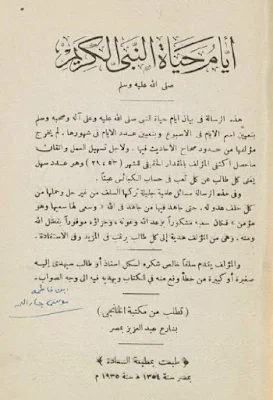 ايام حياة النبي الكريم
صلى الله عليه وسلم
هذه الرسالة فى بيان ايام حياة النبى صلى الله عليه وعلى آله وصحبه وسلم
بتعيين اسم الايام فى الاسبوع وبتعيين عدد الايام فى شهورها. لم يخرج
مؤلفها من حدود صحاح الاحاديث فيها. ولاجل تسهيل العمل واتقان
حاصل اكتفى المؤلف بالمقدار الحقيقى للشهر (٢٩٤٥٣) وهو عدد سهل
يغنى كل طالب عن كل تعب فى حساب الكبائس عبثا.
وفى هذه الرسالة مسائل علمية جليلة تركها السلف من غير حل وحملها من
كل خلف عدوله. حتى جاهد فيها من جاهد فى الله « وسعى لها سعيها وهو
مؤمن » فكان سعيه مشكورا بوعد الله وعونه وجزاؤه موفورا بفضل الله
ومنه. وهى من المؤلف هدية الى كل طالب يرغب فى المزيد وفى الاستفادة.
والمؤلف يتقدم سلفا خالص شكره لكل استاذ أو طالب سيهدى إليه
صغيرة أو كبيرة من خطأ وقع منه فى الكتاب ويهديه فيه الى وجه الصواب.
ابن فاطمة
موسى جار الله
( تطلب من مكتبة الخانجى )
بشارع عبد العزيز بمصر
طبعت بمطبعة السعادة
بمصر سنة ١٣٥٤ هـ سنة ١٩٣٥ م